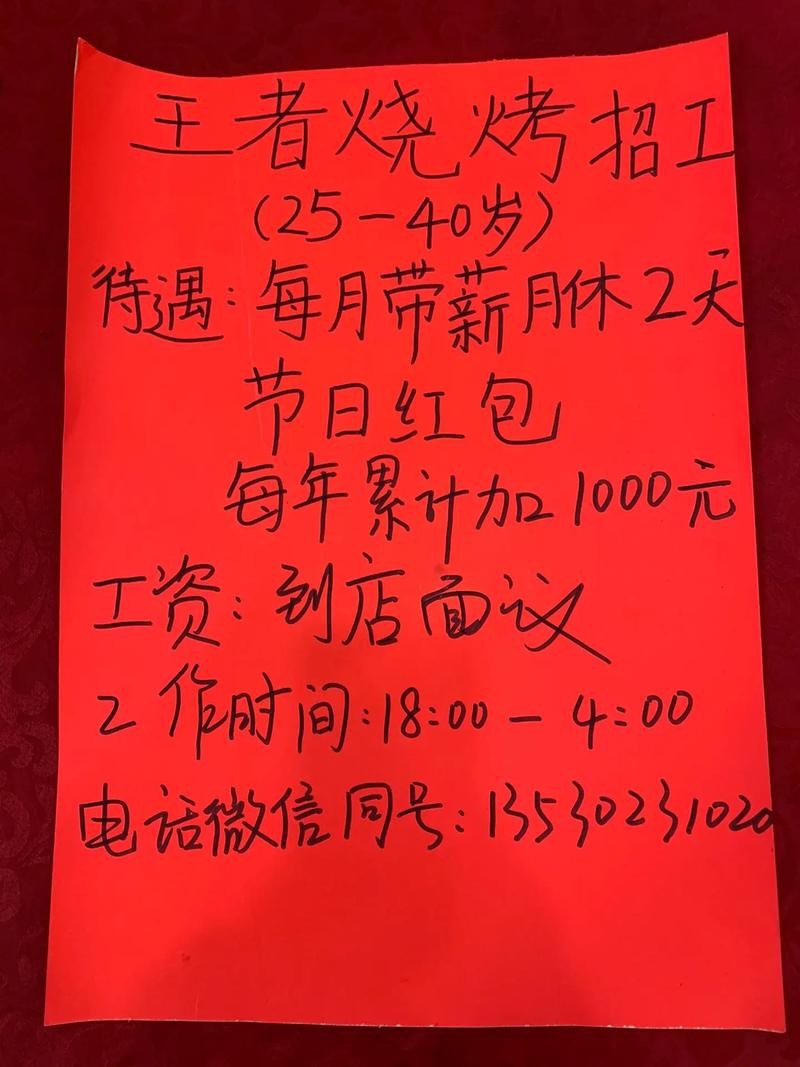 王者烧烤招工
(25-40岁)
待遇:每月带薪月休2天
节日红包
每年累计加1000元
工资:到店面议
工作时间:18:00-4:00
电话微信同号:13530231020